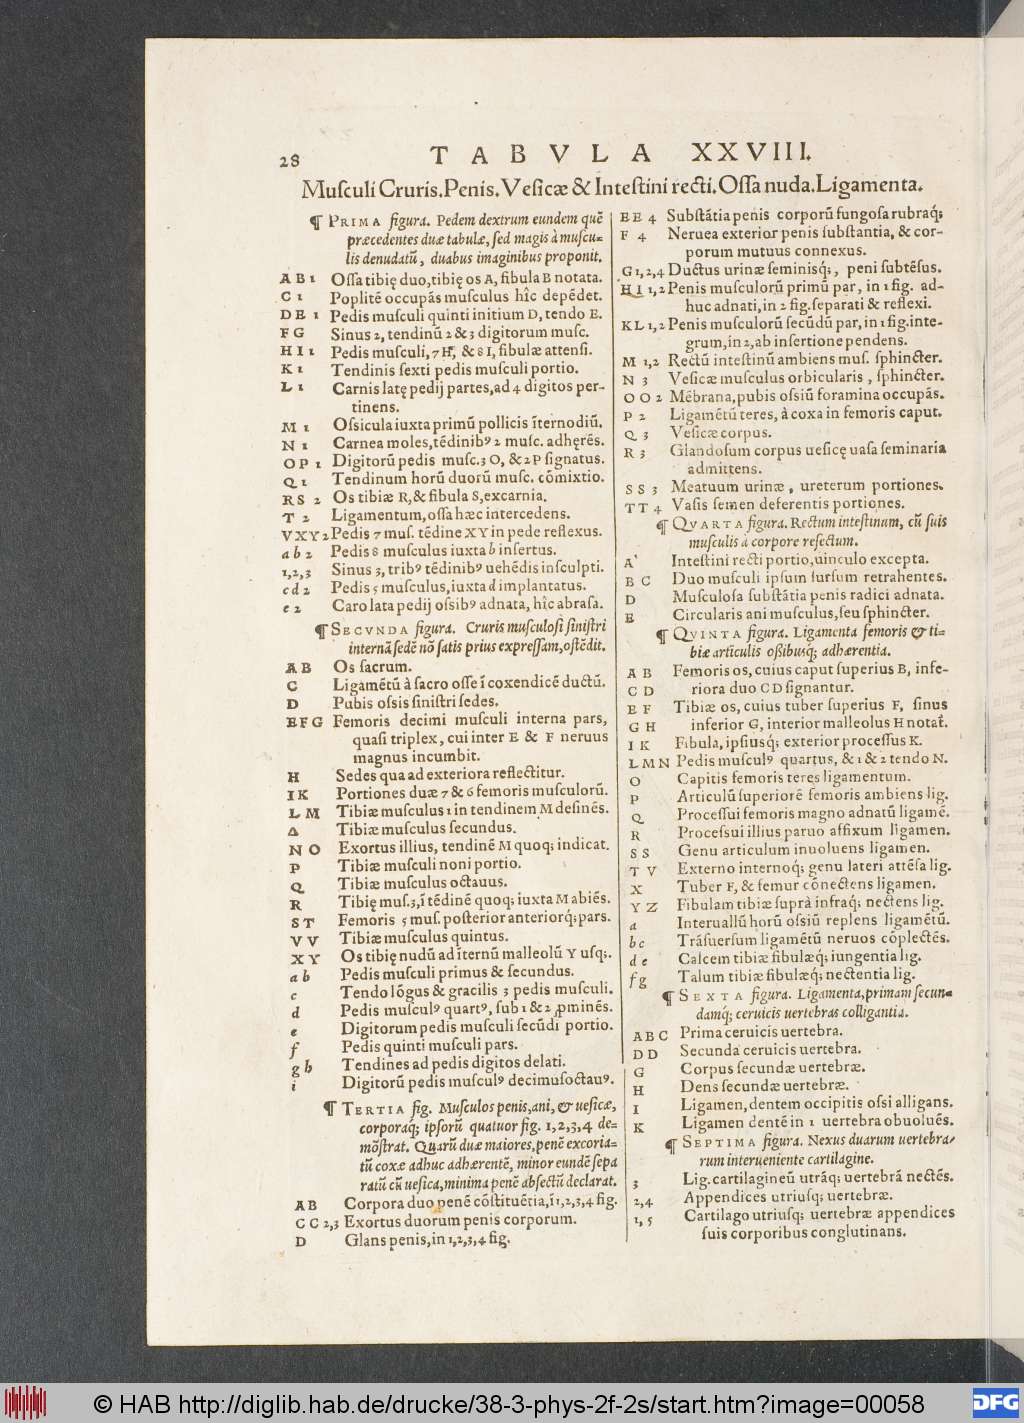 28 TABVLA XXVIII.
Muſculi Cruris. Penis. Veſicæ & Inteſtini recti. Oſſa nuda. Ligamenta.
¶ PRIMA figura. Pedem dextrum eundem quē
præcedentes duæ tabulæ, ſed magis à muſcu-
lis denudatū, duabus imaginibus proponit.
A B 1 Oſſa tibię duo, tibię os A, fibula B notata.
C 1 Poplitē occupās muſculus hîc depēdet.
D E 1 Pedis muſculi quinti initium D, tendo E.
F G Sinus 2, tendinū 2 & 3 digitorum muſc.
H I 1 Pedis muſculi, 7 H, & 8 I, fibulæ attenſi.
K 1 Tendinis ſexti pedis muſculi portio.
L 1 Carnis latę pedij partes, ad 4 digitos per-
tinens.
M 1 Oſsicula iuxta primū pollicis īternodiū.
N 1 Carnea moles, tēdinibꝰ 2 muſc. adhęrēs.
O P 1 Digitorū pedis muſc. 3 O, & 2 P ſignatus.
Q 1 Tendinum horū duorū muſc. cōmixtio.
R S 2 Os tibiæ R, & fibula S, excarnia.
T 2 Ligamentum, oſſa hæc intercedens.
V X Y 2 Pedis 7 muſ. tēdine X Y in pede reflexus.
a b 2 Pedis 8 muſculus iuxta b inſertus.
1, 2, 3 Sinus 3, tribꝰ tēdinibꝰ uehēdis inſculpti.
c d 2 Pedis 5 muſculus, iuxta d implantatus.
e 2 Caro lata pedij oſsibꝰ adnata, hîc abraſa.
¶ SECVNDA figura. Cruris muſculoſi ſiniſtri
internā ſedē nō ſatis prius expreſſam, oſtēdit.
A B Os ſacrum.
C Ligamētū à ſacro oſſe ī coxendicē ductū.
D Pubis oſsis ſiniſtri ſedes.
E F G Femoris decimi muſculi interna pars,
quaſi triplex, cui inter E & F neruus
magnus incumbit.
H Sedes qua ad exteriora reflectitur.
I K Portiones duæ 7 & 6 femoris muſculorū.
L M Tibiæ muſculus 1 in tendinem M deſinēs.
Δ Tibiæ muſculus ſecundus.
N O Exortus illius, tendinē M quoq; indicat.
P Tibiæ muſculi noni portio.
Q Tibiæ muſculus octauus.
R Tibię muſ. 3, ī tēdinē quoq; iuxta M abiēs.
S T Femoris 5 muſ. poſterior anteriorq; pars.
V V Tibiæ muſculus quintus.
X Y Os tibię nudū ad īternū malleolū Y uſq;.
a b Pedis muſculi primus & ſecundus.
c Tendo lōgus & gracilis 3 pedis muſculi.
d Pedis muſculꝰ quartꝰ, ſub 1 & 2 ꝓminēs.
e Digitorum pedis muſculi ſecūdi portio.
f Pedis quinti muſculi pars.
g h Tendines ad pedis digitos delati.
i Digitorū pedis muſculꝰ decimuſoctauꝰ.
¶ TERTIA fig. Muſculos penis, ani, & ueſicæ,
corporaq; ipſorū quatuor fig. 1, 2, 3, 4 de-
mōſtrat. Quarū duæ maiores, penē excoria-
tū coxæ adhuc adhærentē, minor eundē ſepa
ratū cū ueſica, minima penē abſectū declarat.
A B Corpora duo penē cōſtituētia, ī 1, 2, 3, 4 fig.
C C 2, 3 Exortus duorum penis corporum.
D Glans penis, in 1, 2, 3, 4 fig.
E E 4 Subſtātia penis corporū fungoſa rubraq;
F 4 Neruea exterior penis ſubſtantia, & cor-
porum mutuus connexus.
G 1, 2, 4 Ductus urinæ ſeminisq;, peni ſubtēſus.
H I 1, 2 Penis muſculorū primū par, in 1 fig. ad-
huc adnati, in 2 fig. ſeparati & reflexi.
K L 1, 2 Penis muſculorū ſecūdū par, in 1 fig. inte-
grum, in 2, ab inſertione pendens.
M 1, 2 Rectū inteſtinū ambiens muſ. ſphincter.
N 3 Veſicæ muſculus orbicularis, ſphincter.
O O 2 Mēbrana, pubis oſsiū foramina occupās.
P 2 Ligamētū teres, à coxa in femoris caput.
Q 3 Veſicæ corpus.
R 3 Glandoſum corpus ueſicę uaſa ſeminaria
admittens.
S S 3 Meatuum urinæ, ureterum portiones.
T T 4 Vaſis ſemen deferentis portiones.
¶ QVARTA figura. Rectum inteſtinum, cū ſuis
muſculis à corpore reſectum.
A Inteſtini recti portio, uinculo excepta.
B C Duo muſculi ipſum ſurſum retrahentes.
D Muſculoſa ſubſtātia penis radici adnata.
E Circularis ani muſculus, ſeu ſphincter.
¶ QVINTA figura. Ligamenta femoris & ti-
biæ articulis oßibusq; adhærentia.
A B Femoris os, cuius caput ſuperius B, infe-
C D riora duo C D ſignantur.
E F Tibiæ os, cuius tuber ſuperius F, ſinus
G H inferior G, interior malleolus H notat̄.
I K Fibula, ipſiusq; exterior proceſſus K.
L M N Pedis muſculꝰ quartus, & 1 & 2 tendo N.
O Capitis femoris teres ligamentum.
P Articulū ſuperiorē femoris ambiens lig.
Q Proceſſui femoris magno adnatū ligamē.
R Proceſsui illius paruo affixum ligamen.
S S Genu articulum inuoluens ligamen.
T V Externo internoq; genu lateri attēſa lig.
X Tuber F, & femur cōnectens ligamen.
Y Z Fibulam tibiæ ſuprà infraq; nectens lig.
a Interuallū horū oſsiū replens ligamētū.
b c Trāſuerſum ligamētū neruos cōplectēs.
d e Calcem tibiæ fibulæq; iungentia lig.
f g Talum tibiæ fibulæq; nectentia lig.
¶ SEXTA figura. Ligamenta, primam ſecun-
damq; ceruicis uertebras colligantia.
A B C Prima ceruicis uertebra.
D D Secunda ceruicis uertebra.
G Corpus ſecundæ uertebræ.
H Dens ſecundæ uertebræ.
I Ligamen, dentem occipitis oſsi alligans.
K Ligamen dentē in 1 uertebra obuoluēs.
¶ SEPTIMA figura. Nexus duarum uertebra-
rum interueniente cartilagine.
3 Lig. cartilagineū utrāq; uertebrā nectēs.
2, 4 Appendices utriuſq; uertebræ.
1, 5 Cartilago utriuſq; uertebræ appendices
ſuis corporibus conglutinans.
© HAB http://diglib.hab.de/drucke/38-3-phys-2f-2s/start.htm?image=00058
DFG